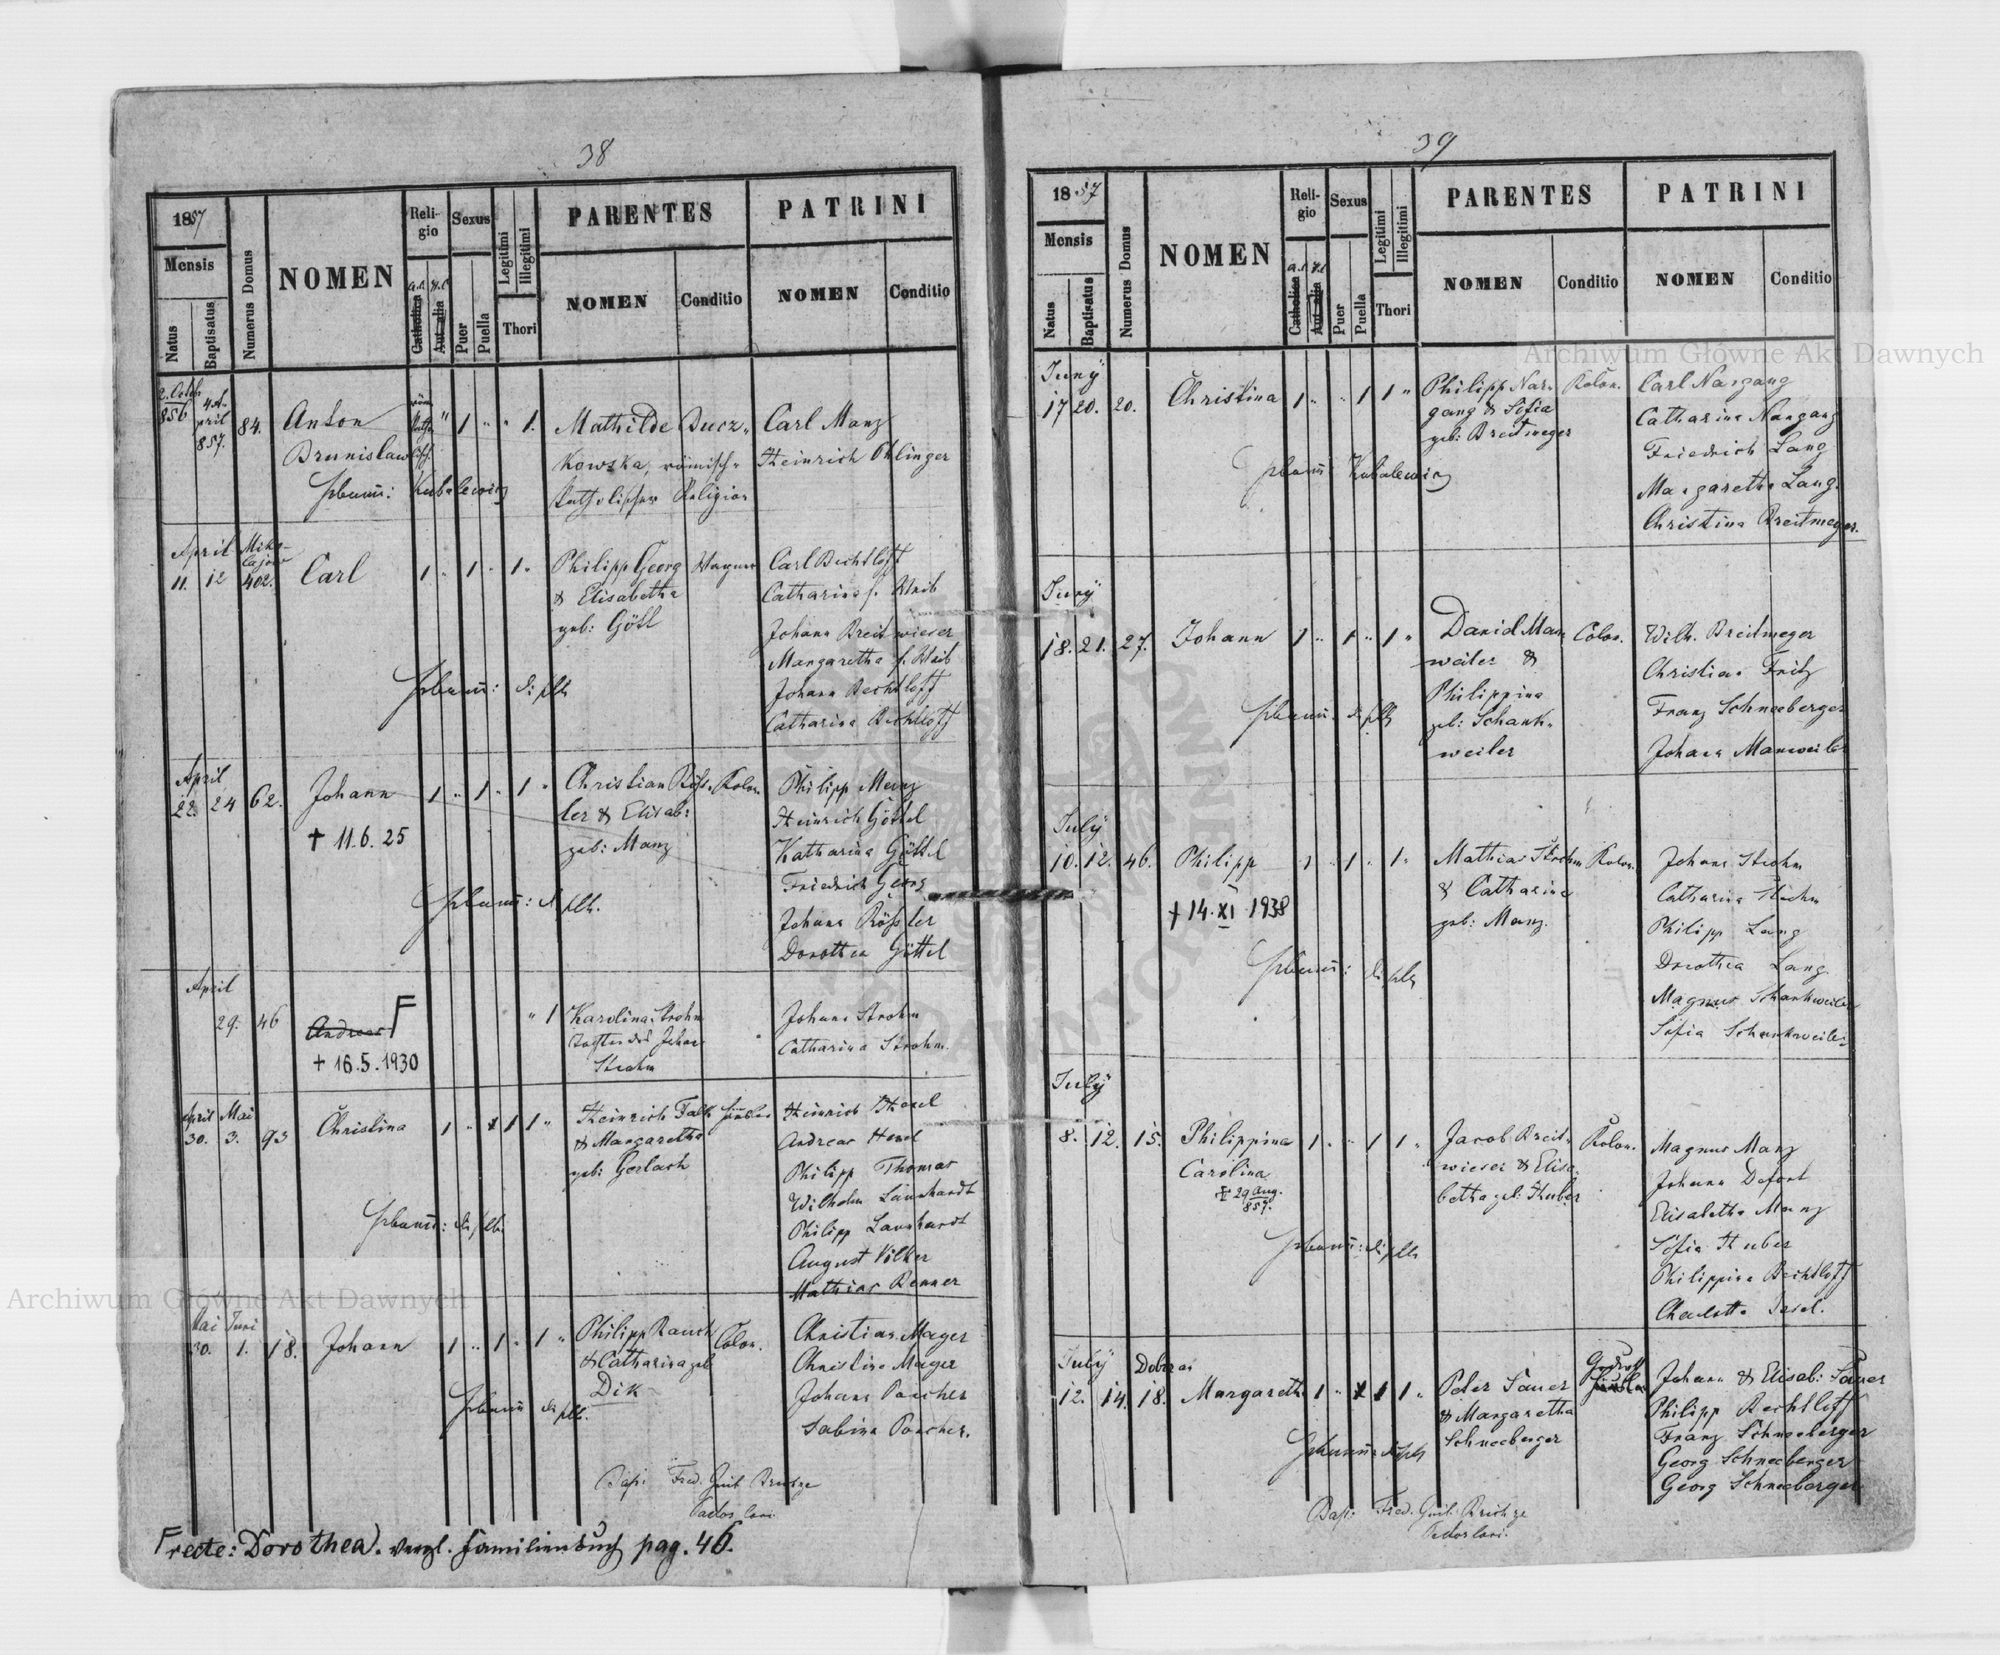 38
1857
Mensis
Natus
Baptisatus
Numerus Domus
NOMEN
Religio
a.c.
h.c.
Catholica
Aut alia
Sexus
Puer
Puella
Legitimi
Illegitimi
Thori
PARENTES
NOMEN
Conditio
PATRINI
NOMEN
Conditio
2. Octob 856
4 April 857.
84.
Anton
Brunislaw
1 " " 1.
Mathilde Bucz-
kowska, römisch-
katholischer Religion
Carl Manz
Heinrich Ohlinger
Hebamm: Kubalewicz
April
11. 12
Miko-
lajow
402.
Carl
1 " 1 " 1 "
Philipp Georg
& Elisabetha
geb: Göttl
Wagner
Carl Bechtloff
Catharina s. Weib
Johann Breitwieser
Margaretha s. Weib
Johann Bechtloff
Catharina Bechtloff
Hebamm: dieselbe
April
22. 24
62.
Johann
† 11.6.25
1 " 1 " 1 "
Christian Röss-
ler & Elisab:
geb: Manz
Kolon.
Philipp Manz
Heinrich Göttel
Katharina Göttel
Friedrich Georg
Johann Rössler
Dorothea Göttel
Hebamm: dieselbe.
April
29.
46
Andreas F
† 16.5.1930
" 1
Karolina Strohm
Tochter des Johann
Strohm
Johann Strohm
Catharina Strohm.
April Mai
30. 3.
93
Christina
1 " 1 1 "
Heinrich Falk
& Margaretha
geb: Gerlach
Heinrich Hexel
Andreas Hexel
Philipp Thomas
Wilhelm Launhardt
Philipp Launhardt
August Völker
Mathias Renner
Hebamm: dieselbe.
Mai Juni
30. 1.
18.
Johann
1 " 1 " 1 "
Philipp Rauch
& Catharina geb
Dik
Colon.
Christian Mager
Christine Mager
Johann Poncher
Sabina Poncher.
Hebamm dieselbe.
F recte: Dorothea. vergl. Familienbuch pag. 46.
39
1857
Mensis
Natus
Baptisatus
Numerus Domus
NOMEN
Religio
a.c.
h.c.
Catholica
Aut alia
Sexus
Puer
Puella
Legitimi
Illegitimi
Thori
PARENTES
NOMEN
Conditio
PATRINI
NOMEN
Conditio
Juny
17 20.
20.
Christina
1 " " 1 1 "
Philipp Nar-
gang & Sofia
geb: Breitmeger
Kolon.
Carl Nargang
Catharina Nargang
Friedrich Lang
Margaretha Lang.
Christina Breitmeger.
Hebamm Kubalewicz
Juny
18. 21.
27.
Johann
1 " 1 " 1 "
Daniel Man
weiler &
Philippina
geb: Schank-
weiler
Colon.
Wilh. Breitmeger
Christian Fritz
Franz Schneeberger
Johann Manweiler
Hebamm: dieselbe
July
10. 12.
46.
Philipp
† 14. XI. 1938
1 " 1 " 1 "
Mathias Strohm
& Catharina
geb: Manz.
Kolon.
Johann Strohm
Catharina Strohm
Philipp Lang
Dorothea Lang.
Magnus Schankweiler
Sofia Schankweiler
Hebamm: dieselbe
July
8. 12.
15.
Philippina
Carolina
‡ 29 Aug. 857.
1 " " 1 1 "
Jacob Breit-
wieser & Elisa-
betha geb: Huber
Kolon.
Magnus Manz
Johann Defort
Elisabetha Manz
Sofia Huber
Philippina Bechtloff
Charlotte
Hebamm: dieselbe
July
12. 14.
Dobrzan
18.
Margareth
1 " 1 1 "
Peter Sauer
& Margaretha
Schneeberger
Johann & Elisab: Sauer
Philipp Bechtloff
Franz Schneeberger
Georg Schneeberger
Georg Schneeberger
Hebamm: dieselbe
Archiwum Główne Akt Dawnych
Archiwum Główne Akt Dawnych